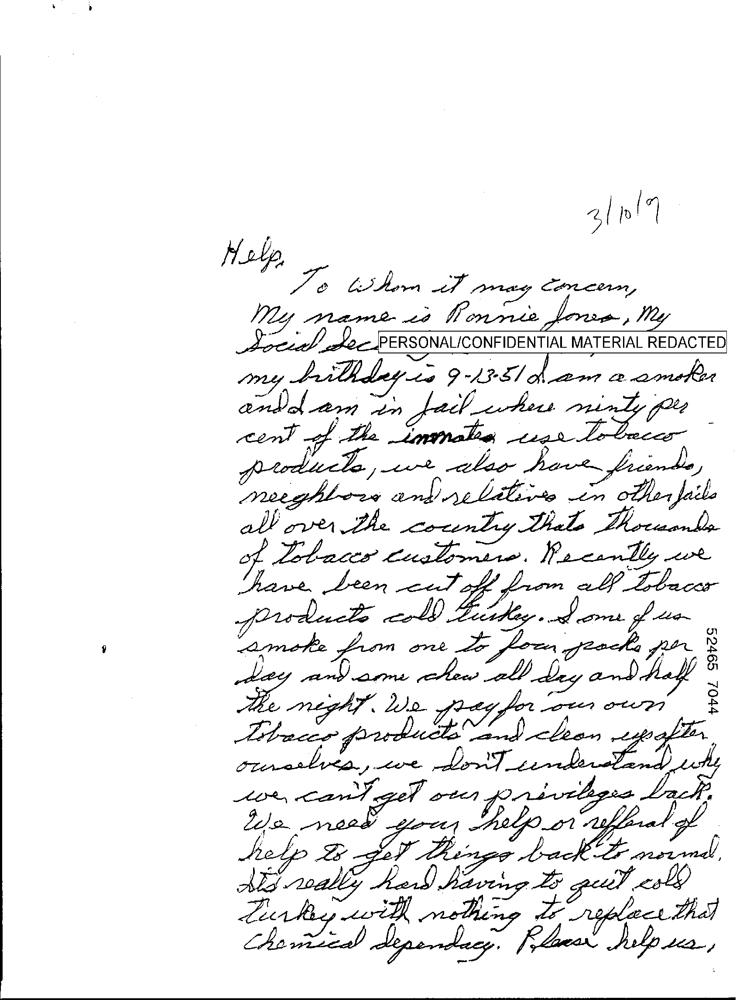 3/10/9
Help,
To Whom it may Concern,
My name is Ronnie Jones, My
Social Sec PERSONAL/CONFIDENTIAL MATERIAL REDACTED
my birthday is 9-13-51 I am a smoker
and I am in jail where ninty per
cent of the inmates use tobacco
products, we also have friends,
neeghbors and relatives in other jails
all over the country thats thousands
of tobacco customers. Recently we
have been cut off from all tobacco
products cold turkey. Some of us
smoke from one to four packs per
day and some chew all day and half
the night. We pay for our own
tobacco products and clean up after
ourselves, we don't understand why
we can't get our privileges back.
We need your help or refferal of
help to get things back to normal.
Its really hard having to quit cold
turkey with nothing to replace that
Chemical dependacy. Please help us,
52465 7044